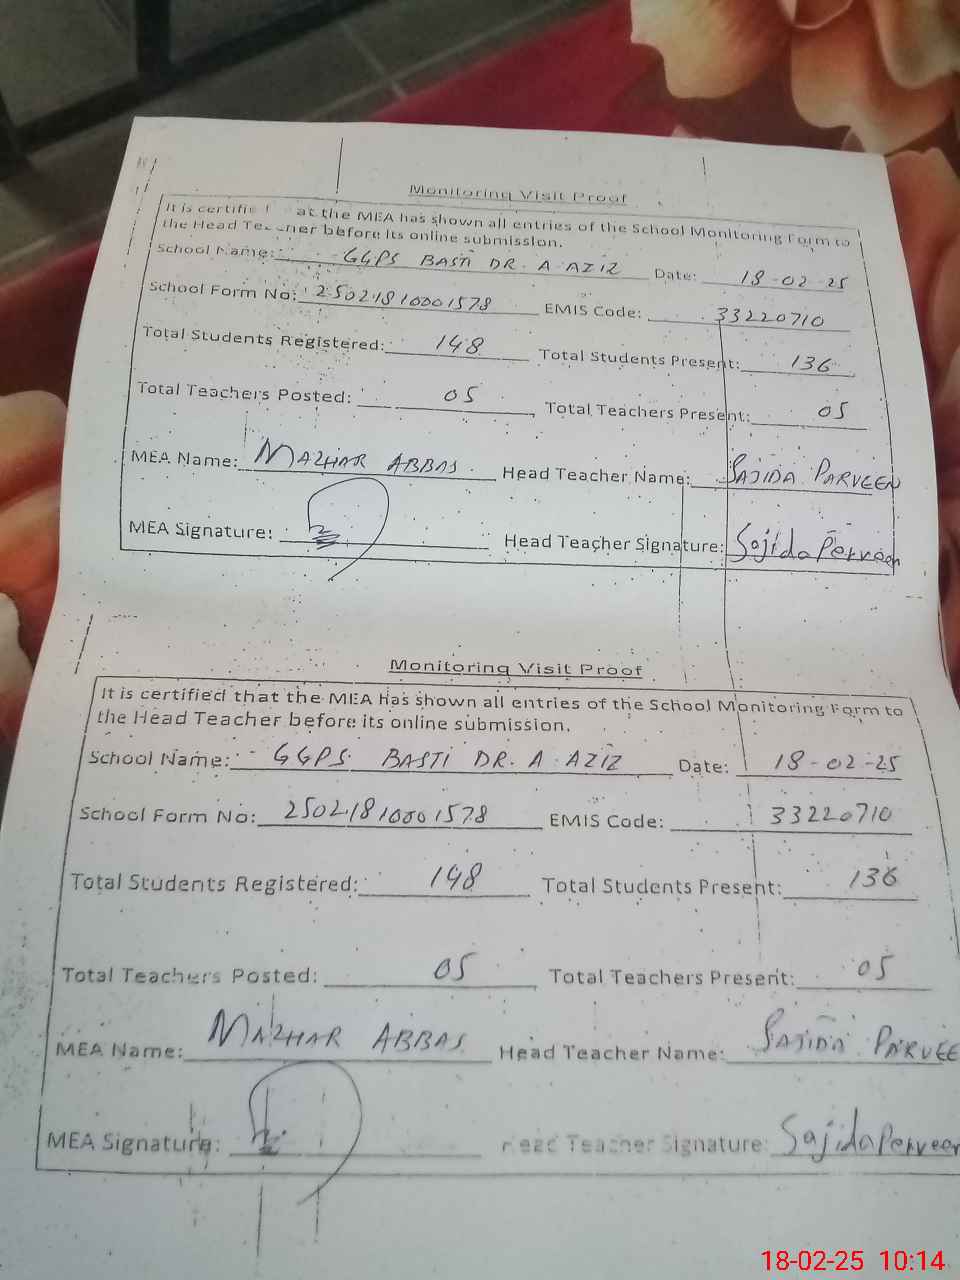 Monitoring Visit Proof
It is certified at the MEA has shown all entries of the School Monitoring Form to
the Head Teacher before its online submission.
School Name: GGPS BASTI DR. A. AZIZ Date: 18-02-25
School Form No: 25021810001578 EMIS Code: 33220710
Total Students Registered: 148 Total Students Present: 136
Total Teachers Posted: 05 Total Teachers Present: 05
MEA Name: MAZHAR ABBAS Head Teacher Name: SAJIDA PARVEEN
MEA Signature: Head Teacher Signature: Sajida Perveen
Monitoring Visit Proof
It is certified that the MEA has shown all entries of the School Monitoring Form to
the Head Teacher before its online submission.
School Name: GGPS BASTI DR. A. AZIZ Date: 18-02-25
School Form No: 25021810001578 EMIS Code: 33220710
Total Students Registered: 148 Total Students Present: 136
Total Teachers Posted: 05 Total Teachers Present: 05
MEA Name: MAZHAR ABBAS Head Teacher Name: SAJIDA PARVEE
MEA Signature: Head Teacher Signature: Sajida Perveen
18-02-25 10:14